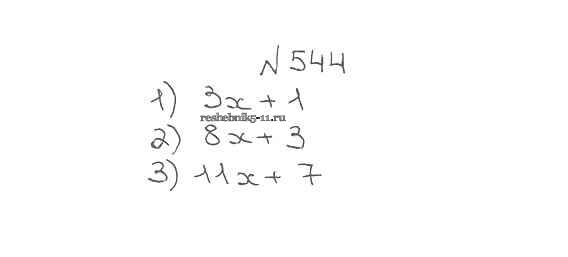 №544
1) 3x + 1
reshebnik5-11.ru
2) 8x + 3
3) 11x + 7